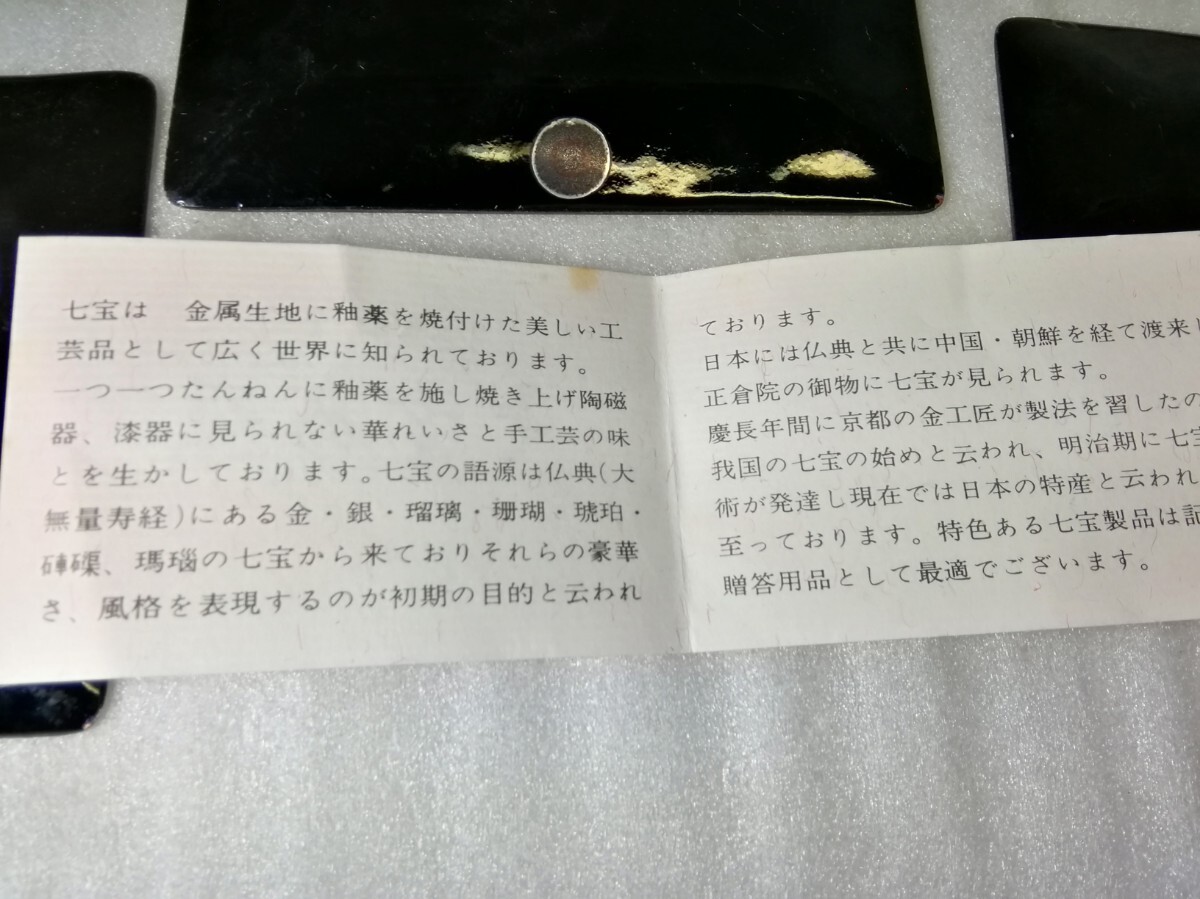 七宝は　金属生地に釉薬を焼付けた美しい工
芸品として広く世界に知られております。
一つ一つたんねんに釉薬を施し焼き上げ陶磁
器、漆器に見られない華れいさと手工芸の味
とを生かしております。七宝の語源は仏典(大
無量寿経)にある金・銀・瑠璃・珊瑚・琥珀・
硨磲、瑪瑙の七宝から来ておりそれらの豪華
さ、風格を表現するのが初期の目的と云われ
ております。
日本には仏典と共に中国・朝鮮を経て渡来し
正倉院の御物に七宝が見られます。
慶長年間に京都の金工匠が製法を習したの
我国の七宝の始めと云われ、明治期に七宝
術が発達し現在では日本の特産と云われ
至っております。特色ある七宝製品は記
贈答用品として最適でございます。